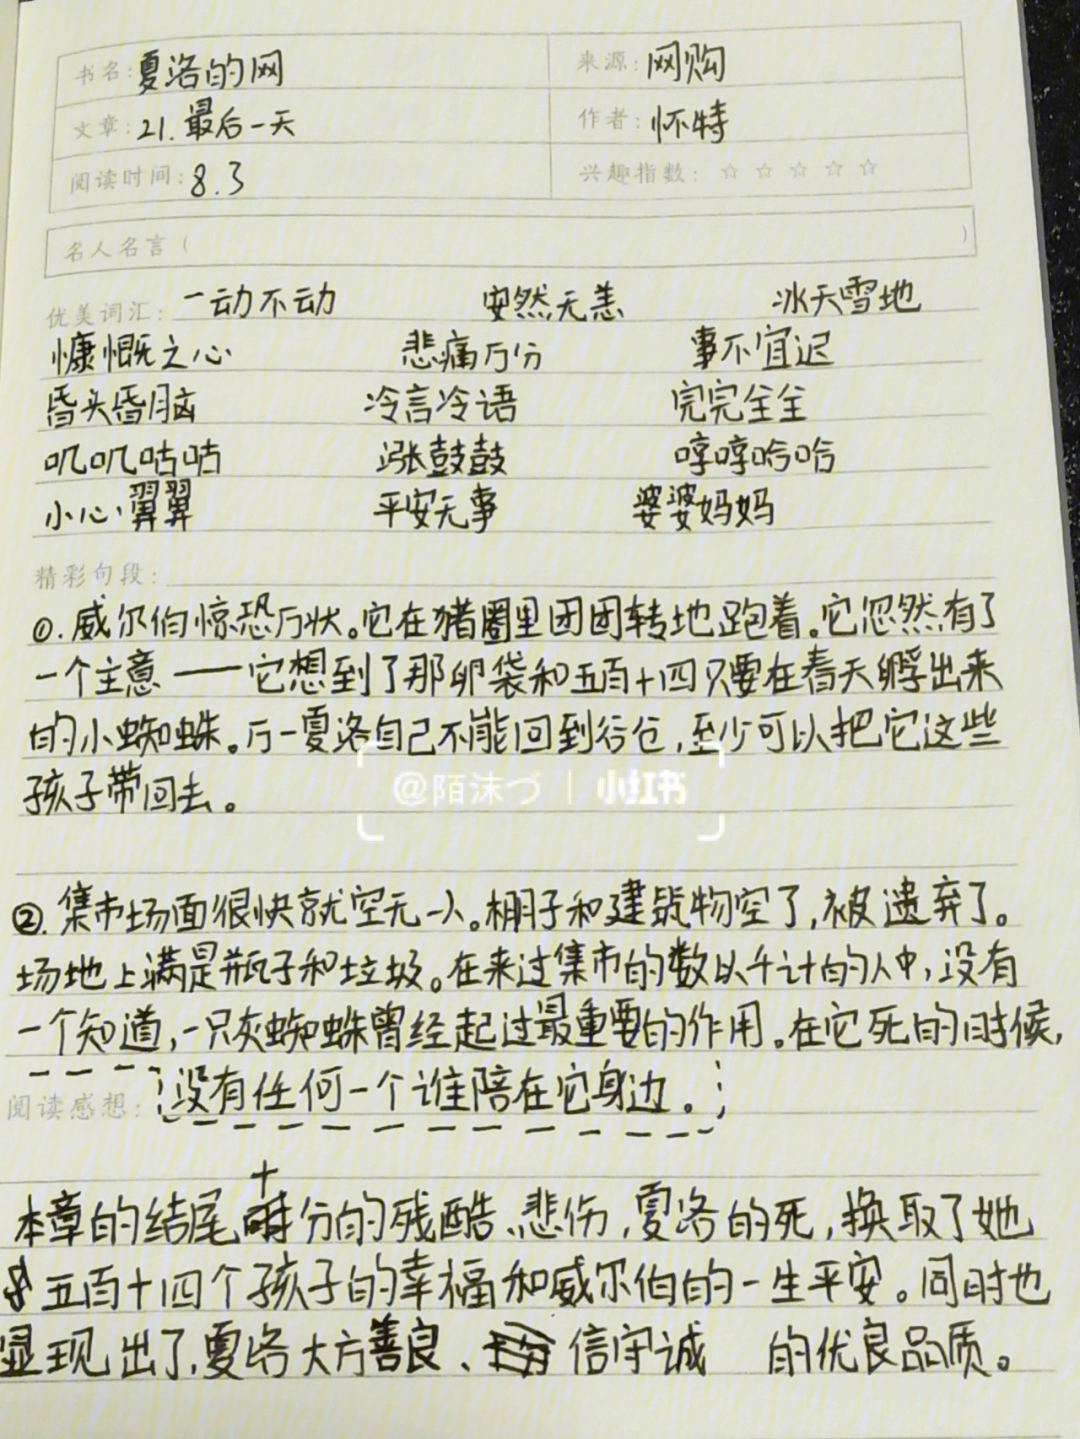 书名: 夏洛的网 来源: 网购
文章: 21.最后一天 作者: 怀特
阅读时间: 8.3 兴趣指数: ☆ ☆ ☆ ☆ ☆
名人名言 ( )
优美词汇: 一动不动 安然无恙 冰天雪地
慷慨之心 悲痛万分 事不宜迟
昏头昏脑 冷言冷语 完完全全
叽叽咕咕 涨鼓鼓 哼哼哈哈
小心翼翼 平安无事 婆婆妈妈
精彩句段:
①.威尔伯惊恐万状。它在猪圈里团团转地跑着。它忽然有了
一个主意——它想到了那卵袋和五百十四只要在春天孵出来
的小蜘蛛。万一夏洛自己不能回到谷仓,至少可以把它这些
孩子带回去。
@陌沫づ | 小红书
②.集市场面很快就空无一人。棚子和建筑物空了,被遗弃了。
场地上满是瓶子和垃圾。在来过集市的数以千计的人中,没有
一个知道,一只灰蜘蛛曾经起过最重要的作用。在它死的时候,
阅读感想: 没有任何一个谁陪在它身边。
本章的结尾十分的残酷、悲伤,夏洛的死,换取了她
五百十四个孩子的幸福和威尔伯的一生平安。同时也
显现出了,夏洛大方善良、信守诚 的优良品质。